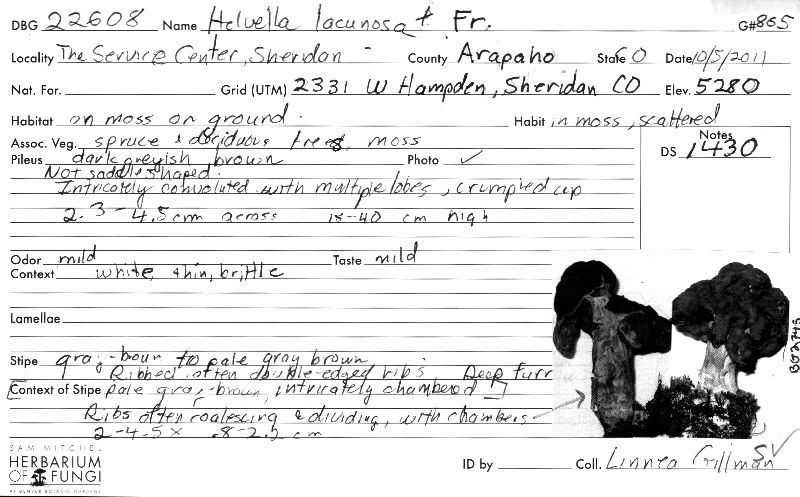 DBG 22608 Name Helvella lacunosa † Fr. G# 865
Locality The Service Center, Sheridan County Arapaho State CO Date 10/5/2011
Nat. For. Grid (UTM) 2331 W Hampden, Sheridan CO Elev. 5280
Habitat on moss on ground. Habit in moss, scattered
Assoc. Veg. spruce & deciduous trees, moss Notes
Pileus dark greyish brown Photo ✓ DS 1430
Not saddle shaped.
Intricately convoluted with multiple lobes, crumpled up
2.3-4.5 cm across cm high
Odor mild Taste mild
Context white, thin, brittle
Lamellae
Stipe gray-boun to pale gray brown
Ribbed often double-edged ribs Deep furr
[Context of Stipe pale gray-brown, intricately chambered]
Ribs often coalescing & dividing, with chambers
2-4.5 x .8-2.2 cm
SAM MITCHEL
HERBARIUM
OF FUNGI
AT DENVER BOTANIC GARDENS
ID by Coll. Linnea Gillman SV